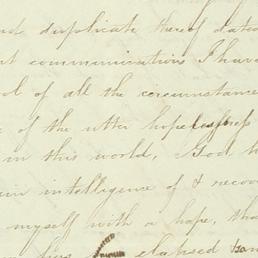 duplicate thereof dated
communications I have
of all the circumstance
of the utter hopelessness
in this world, God h
intelligence of & recov
myself with a hope, tha
elapsed